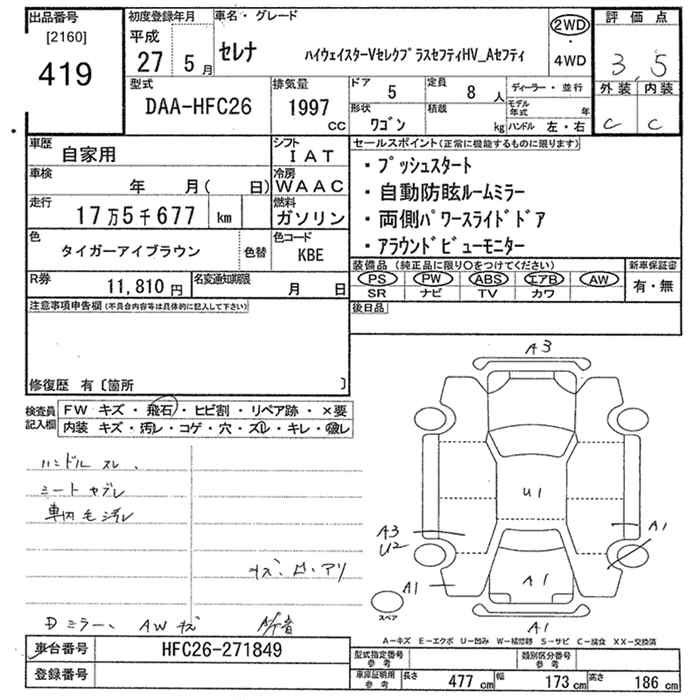 出品番号
[2160]
419
初度登録年月
平成
27 5月
車名・グレード
セレナ ハイウェイスターVセレクプラスセフティHV_Aセフティ
2WD
・
4WD
評価点
3.5
外装 内装
C C
型式
DAA-HFC26
排気量
1997
CC
ドア
5
定員
8 人
ディーラー・並行
形状
ワゴン
積載
kg
モデル年式 年
ハンドル 左・右
車歴
自家用
シフト
IAT
車検
年 月( 日)
冷房
WAAC
走行
17万5千677 km
燃料
ガソリン
色
タイガーアイブラウン
色替
色コード
KBE
R券
11,810円
名変通知期限
月 日
セールスポイント(正常に機能するものに限ります)
・プッシュスタート
・自動防眩ルームミラー
・両側パワースライドドア
・アラウンドビューモニター
装備品(純正品に限り○をつけてください)
PS PW ABS エアB AW
SR ナビ TV カワ
新車保証書
有・無
後日品
注意事項申告欄(不具合内容等は具体的に記入して下さい)
修復歴 有〔箇所 〕
検査員記入欄
FW キズ・飛石・ヒビ割・リペア跡・×要
内装 キズ・汚レ・コゲ・穴・スレ・キレ・破レ
ハンドル スレ
シート ヤブレ
車内 毛 汚レ
Dミラー、 AW キズ
A3
U1
A3
U2
A1
A1
A1
A1
スペア
A-キズ E-エクボ U-凹み W-補修跡 S-サビ C-腐食 XX-交換済
車台番号
HFC26-271849
登録番号
型式指定番号
参考
類別区分番号
参考
車庫証明用
参考
長さ 477cm 幅 173cm 高さ 186cm